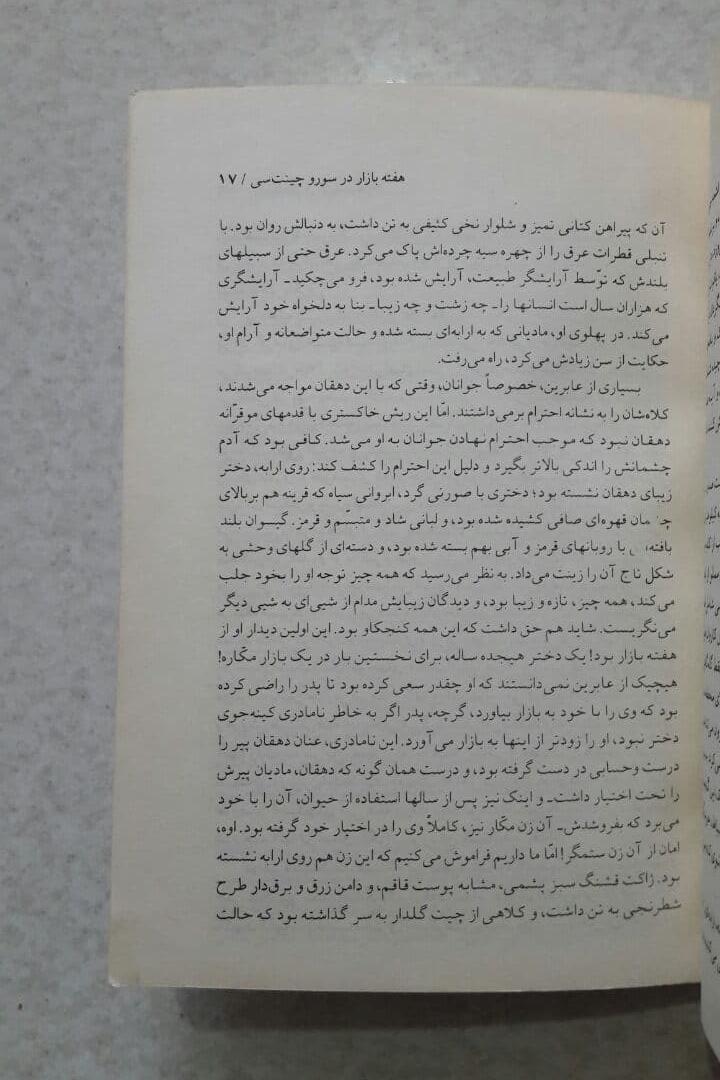 هفته بازار در سورو چینت‌سی / ۱۷
آن که پیراهن کتانی تمیز و شلوار نخی کثیفی به تن داشت، به دنبالش روان بود. با
تنبلی قطرات عرق را از چهره سیه چرده‌اش پاک می‌کرد. عرق حتی از سبیلهای
بلندش که توّسط آرایشگر طبیعت، آرایش شده بود، فرو می‌چکید ـ آرایشگری
که هزاران سال است انسانها را ـ چه زشت و چه زیبا ـ بنا به دلخواه خود آرایش
می‌کند. در پهلوی او، مادیانی که به ارابه‌ای بسته شده و حالت متواضعانه و آرام او،
حکایت از سن زیادش می‌کرد، راه می‌رفت.
بسیاری از عابرین، خصوصاً جوانان، وقتی که با این دهقان مواجه می‌شدند،
کلاه‌شان را به نشانه احترام برمی‌داشتند. امّا این ریش خاکستری با قدمهای موقرّانه
دهقان نبود که موجب احترام نهادن جوانان به او می‌شد. کافی بود که آدم
چشمانش را اندکی بالاتر بگیرد و دلیل این احترام را کشف کند: روی ارابه، دختر
زیبای دهقان نشسته بود؛ دختری با صورتی گرد، ابروانی سیاه که قرینه هم بربالای
مان قهوه‌ای صافی کشیده شده بود، و لبانی شاد و متبسّم و قرمز. گیسوان بلند
بافته‌ با روبانهای قرمز و آبی بهم بسته شده بود، و دسته‌ای از گلهای وحشی به
شکل تاج آن را زینت می‌داد. به نظر می‌رسید که همه چیز توجه او را بخود جلب
می‌کند، همه چیز، تازه و زیبا بود، و دیدگان زیبایش مدام از شیی‌ای به شیی دیگر
می‌نگریست. شاید هم حق داشت که این همه کنجکاو بود. این اولین دیدار او از
هفته بازار بود! یک دختر هیجده ساله، برای نخستین بار در یک بازار مکّاره!
هیچیک از عابرین نمی‌دانستند که او چقدر سعی کرده بود تا پدر را راضی کرده
بود که وی را با خود به بازار بیاورد، گرچه، پدر اگر به خاطر نامادری کینه‌جوی
دختر نبود، او را زودتر از اینها به بازار می‌آورد. این نامادری، عنان دهقان پیر را
درست وحسابی در دست گرفته بود، و درست همان گونه که دهقان، مادیان پیرش
را تحت اختیار داشت ـ و اینک نیز پس از سالها استفاده از حیوان، آن را با خود
می‌برد که بفروشدش ـ آن زن مکّار نیز، کاملاً وی را در اختیار خود گرفته بود. اوه،
امان از آن زن ستمگر! امّا ما داریم فراموش می‌کنیم که این زن هم روی ارابه نشسته
بود. ژاکت قشنگ سبز پشمی، مشابه پوست قاقم، و دامن زرق و برق‌دار طرح
شطرنجی به تن داشت، و کلاهی از چیت گلدار به سر گذاشته بود که حالت